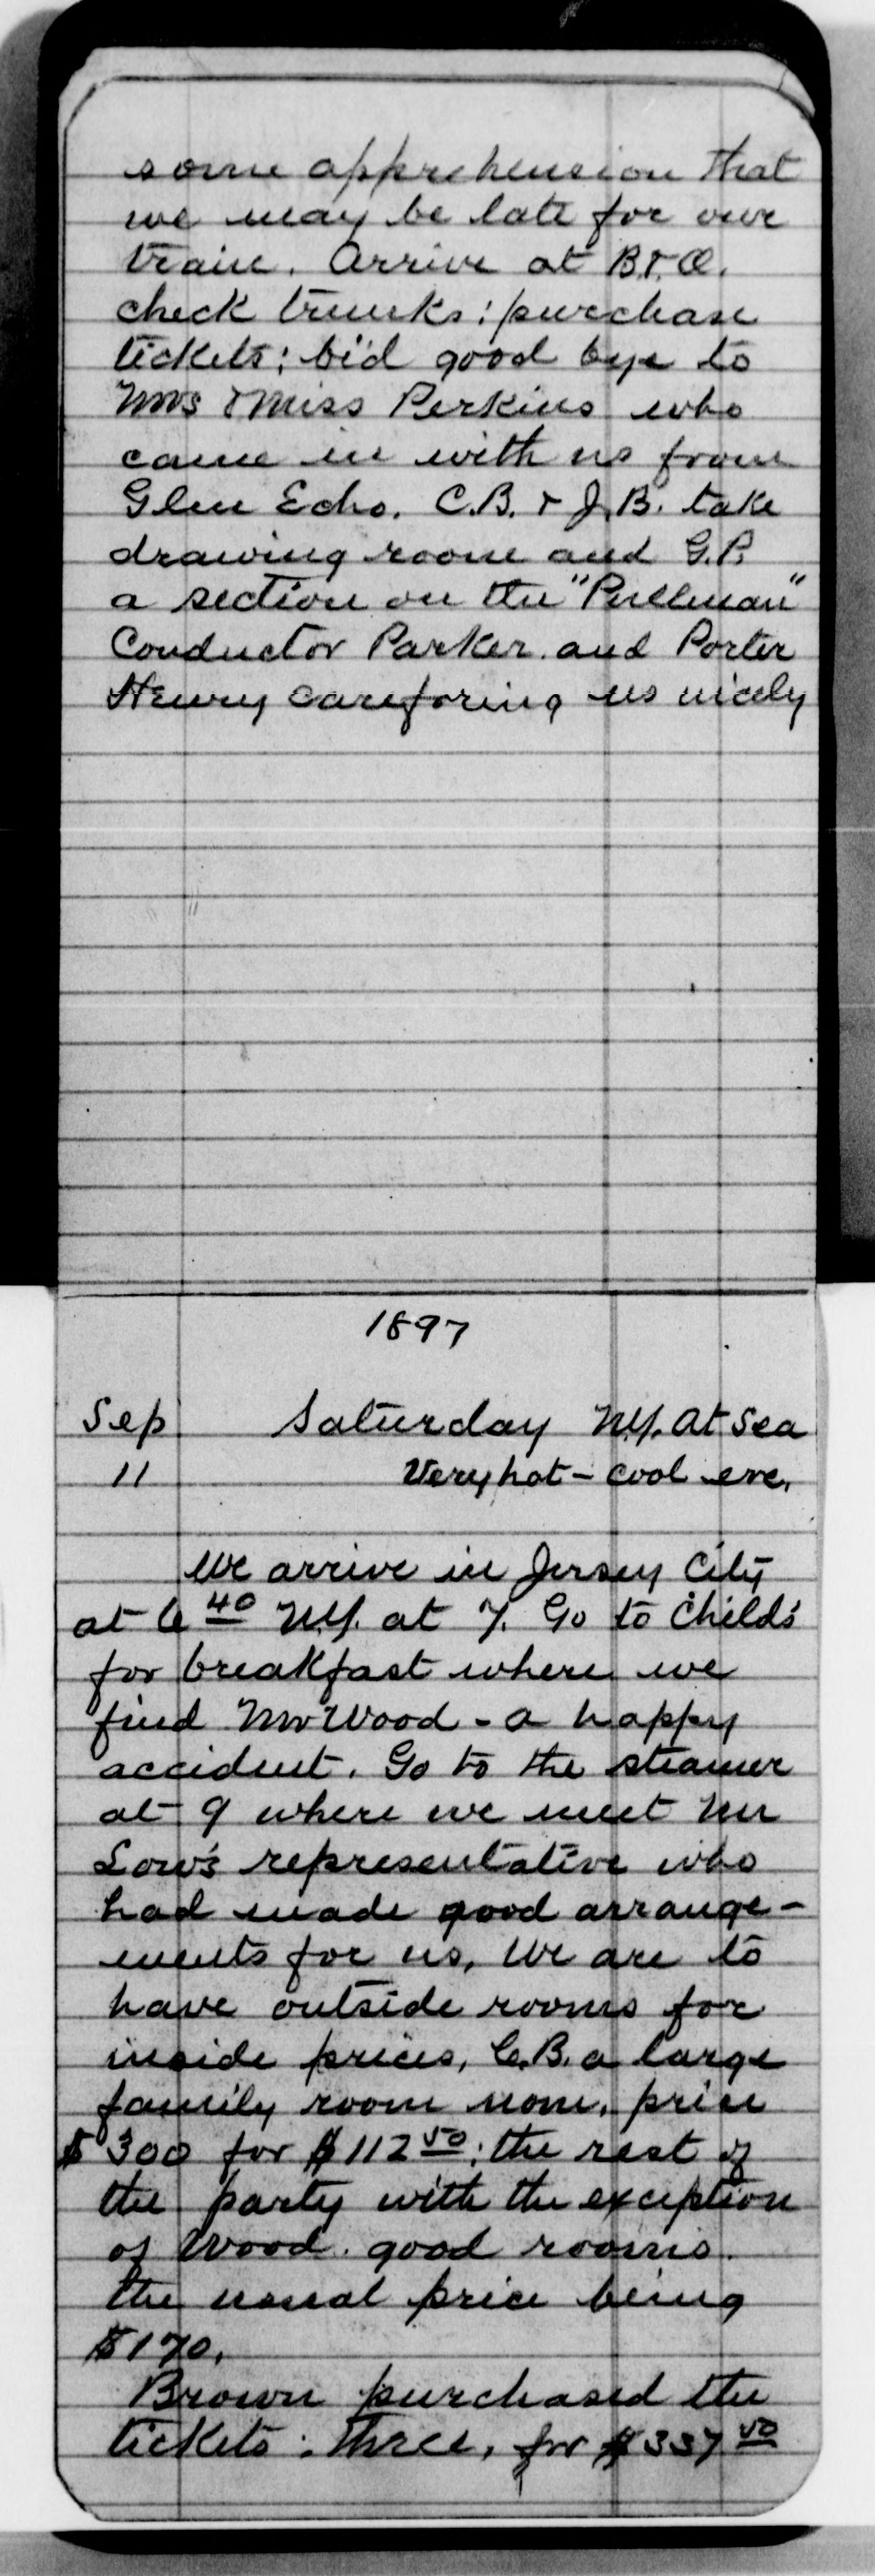 some apprehension that
we may be late for our
train. Arrive at B.&O.
check trunks; purchase
tickets; bid good bye to
Mrs & Miss Perkins who
came in with us from
Glen Echo. C.B. & J.B. take
drawing room and G.P.
a section on the "Pullman"
Conductor Parker. and Porter
Henry careforing us nicely
1897
Sep Saturday N.Y. At Sea
11 Very hot - cool eve.
We arrive in Jersey City
at 6 40 N.Y. at 7. Go to Childs'
for breakfast where we
find Mr Wood - a happy
accident. Go to the steamer
at 9 where we meet Mr
Low's representative who
had made good arrange-
ments for us, We are to
have outside rooms for
inside prices, C.B. a large
family room nom. price
$300 for $112 50; the rest of
the party with the exception
of Wood. good rooms.
the usual price being
$170.
Brown purchased the
tickets: three, for $337 50